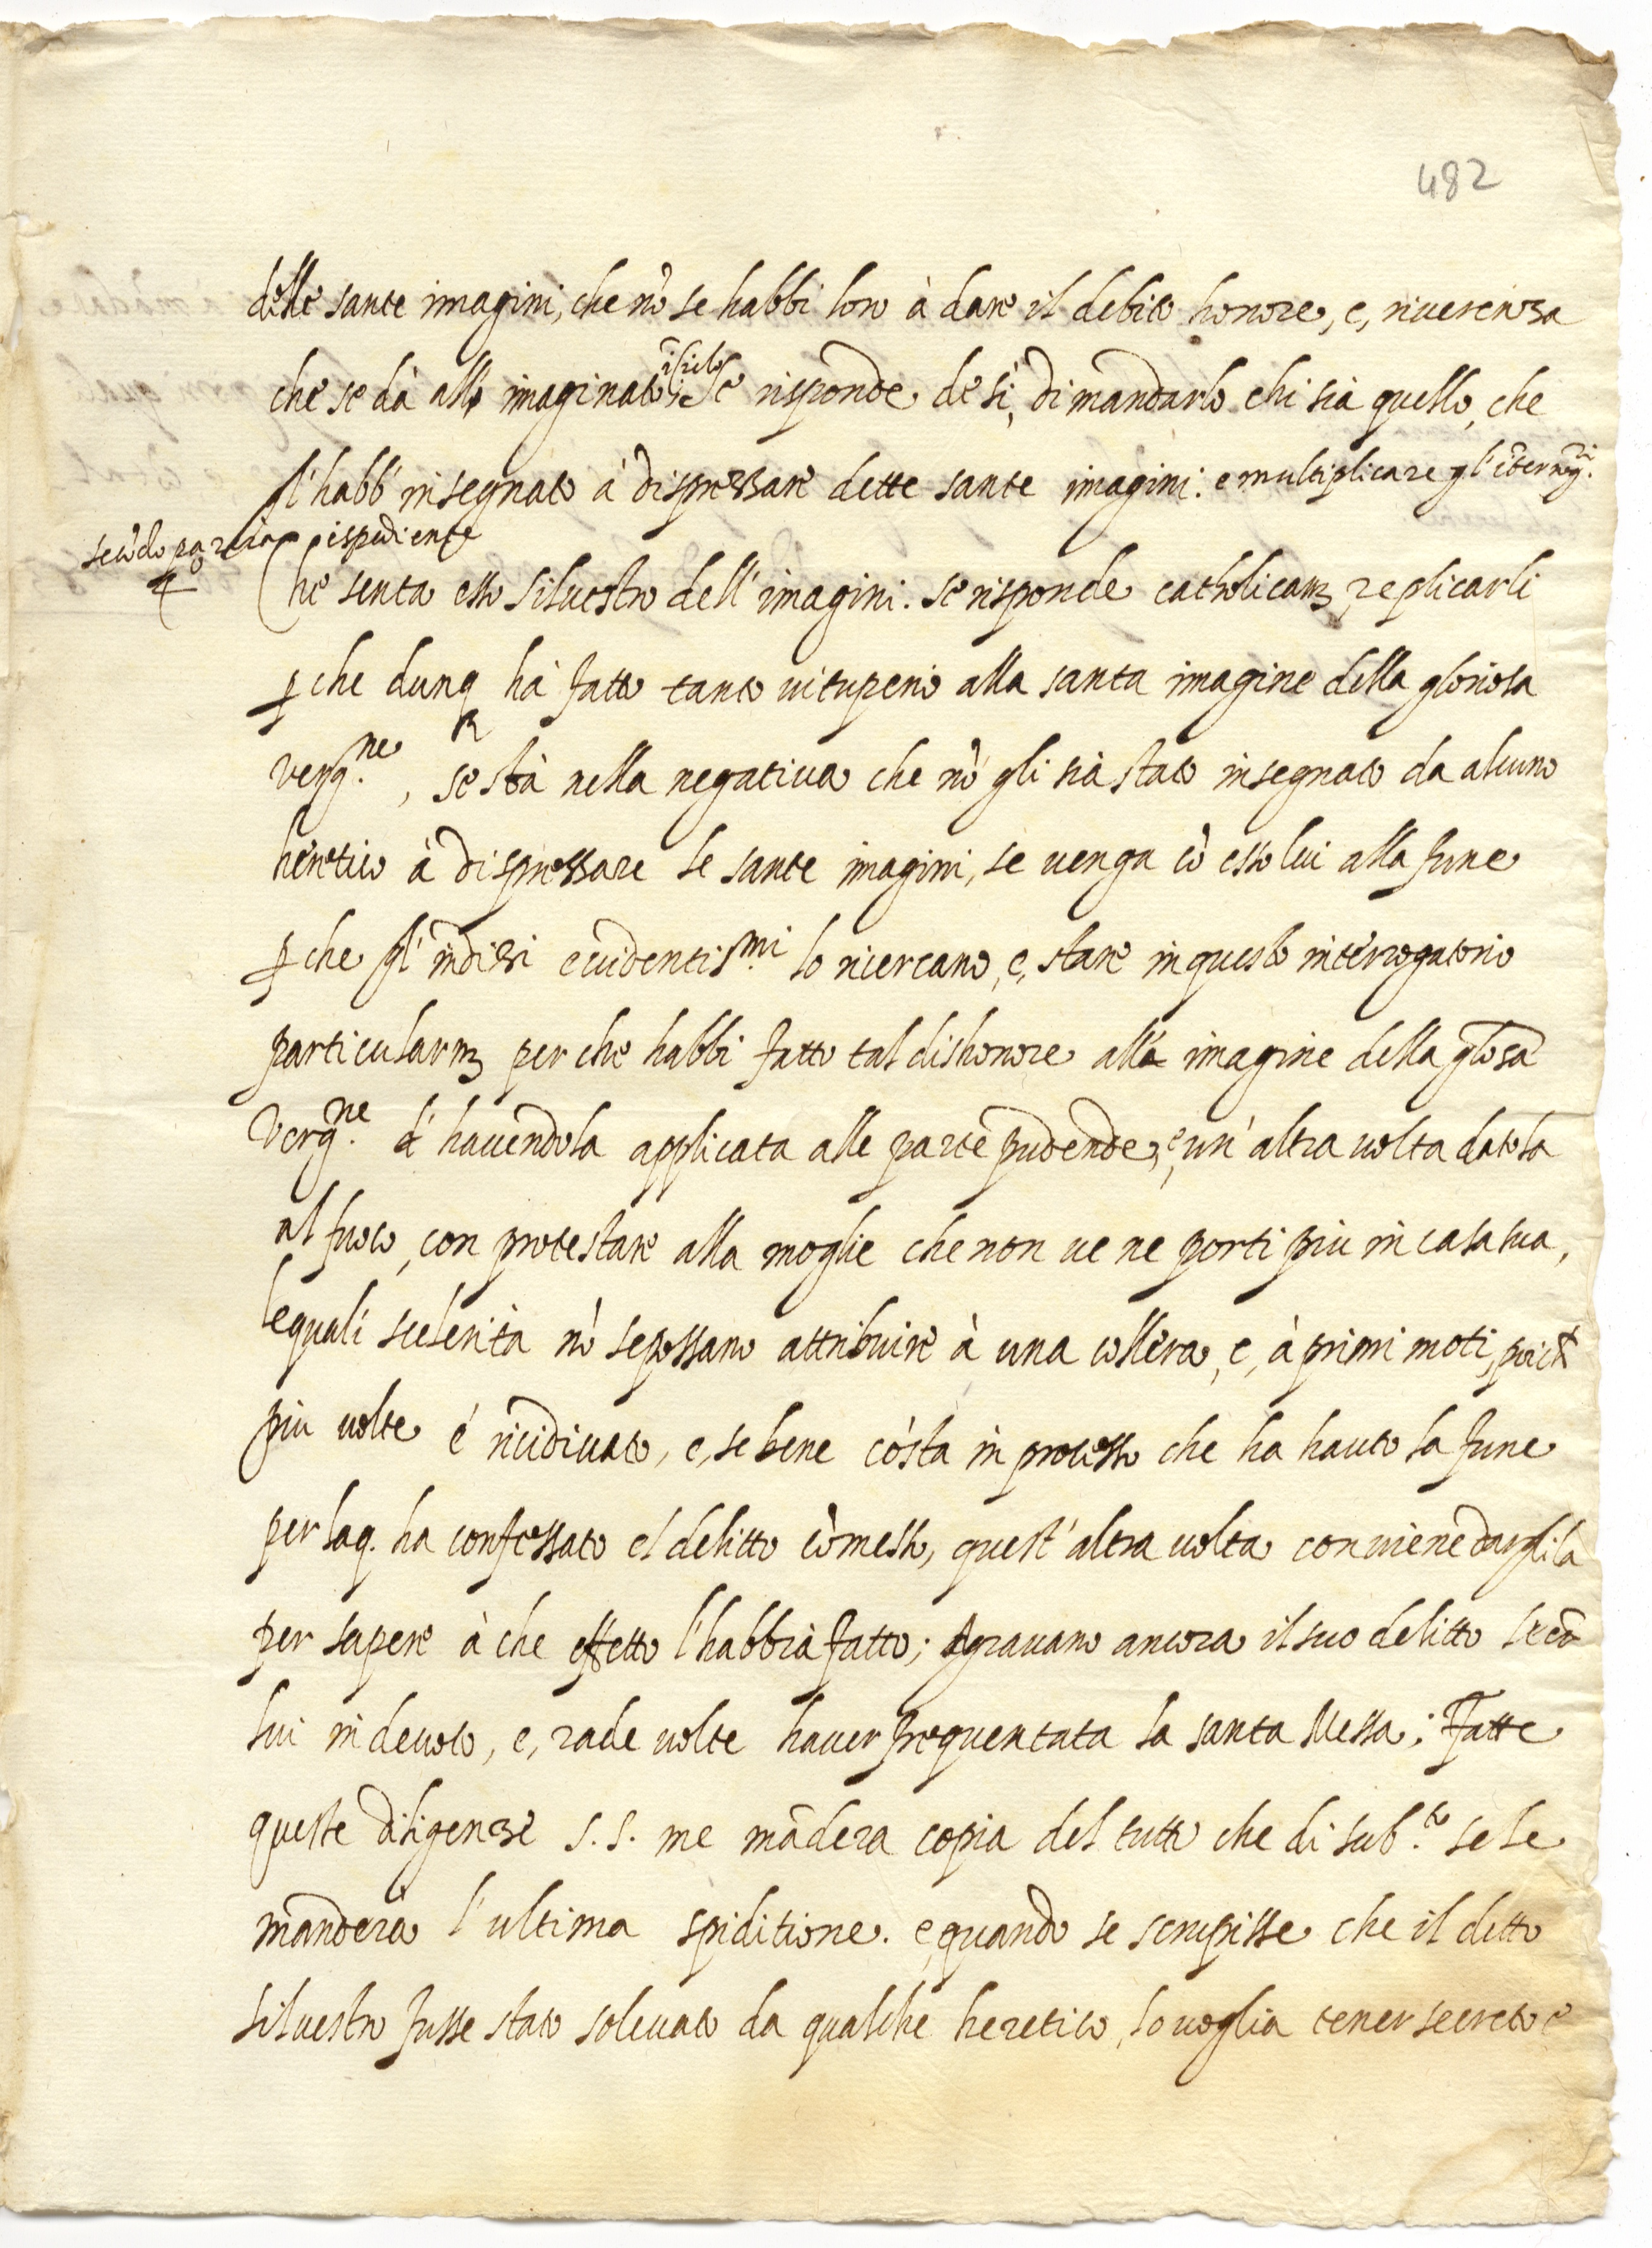 482
delle sante imagini, che nõ se habbi loro à dare il debito honore, e, riuerenza
che se dà all' imaginato; Se risponde de sì, dimandarlo chi sia quello, che
l'habb' insegnato à disprezzare dette sante imagini: e multiplicare gl' ĩterrog.ri
secõdo parerà
ispediente
4º Che senta esso Siluestro dell' imagini. se risponde catholicam.te replicarli
ꝑche dunq hà fatto tanto uituperio alla santa imagine della gloriosa
verg.ne, se stà nella negatiua che nõ gli sia stato insegnato da alcuno
heretico à disprezzare le sante imagini, se uenga cõ esso lui alla fune
ꝑche gl' indizi euidentiss.mi lo ricercano, e, stare in questo interrogatorio
particularm.te per che habbi fatto tal dishonore all' imagine della glõsa
Verg.ne d' hauendola applicata alle parte pudende, e, un' altra uolta datola
al fuoco, con protestare alla moglie che non ue ne porti piu in casa sua,
lequali scelerità nõ se possano attribuire à una collera, e, à primi moti, poiche
piu uolte é ricidiuato, e, se bene cõsta in processo che ha hauto la fune
per laq. ha confessato el delitto cõmesso, quest' altra uolta conuiene dargli la
per sapere à che effetto l'habbia fatto; Agrauano ancora il suo delitto l'eẽr
lui indeuoto, e, rade uolte hauer frequentata la santa Messa; Fatte
queste diligenze S. S. me mãderà copia del tutto che di sub.to se le
manderà l' ultima spiditione. e quando se scrupisse che il detto
Siluestro fusse stato soleuato da qualche heretico, lo uoglia tener secreto e